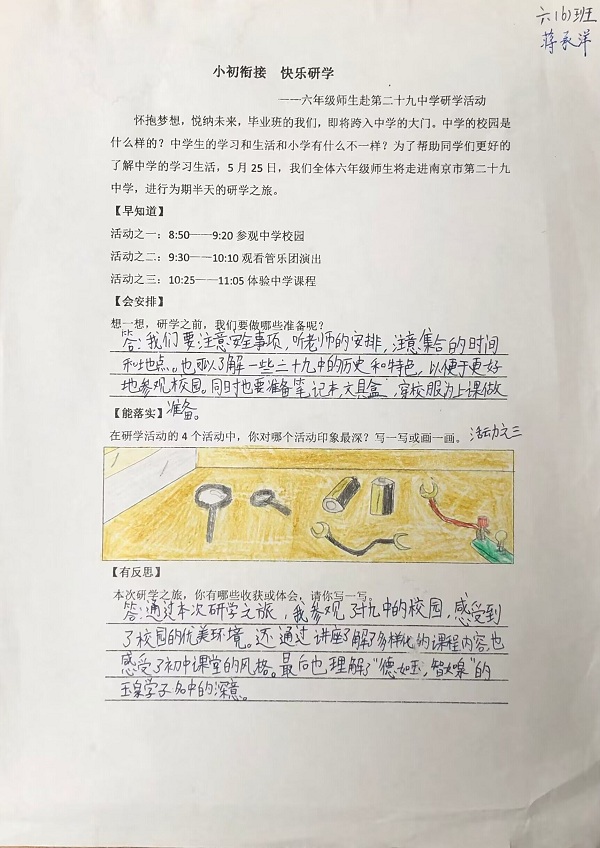 六(6)班
蒋承洋
小初衔接 快乐研学
——六年级师生赴第二十九中学研学活动
怀抱梦想，悦纳未来，毕业班的我们，即将跨入中学的大门。中学的校园是
什么样的？中学生的学习和生活和小学有什么不一样？为了帮助同学们更好的
了解中学的学习生活，5 月 25 日，我们全体六年级师生将走进南京市第二十九
中学，进行为期半天的研学之旅。
【早知道】
活动之一：8:50——9:20 参观中学校园
活动之二：9:30——10:10 观看管乐团演出
活动之三：10:25——11:05 体验中学课程
【会安排】
想一想，研学之前，我们要做哪些准备呢？
答：我们要注意安全事项，听老师的安排，注意集合的时间
和地点。也可以了解一些二十九中的历史和特色，以便于更好
地参观校园。同时也要准备笔记本，文具盒，穿校服为上课做
准备。
【能落实】
在研学活动的 4 个活动中，你对哪个活动印象最深？写一写或画一画。 活动之三
【有反思】
本次研学之旅，你有哪些收获或体会，请你写一写。
答：通过本次研学之旅，我参观了廿九中的校园，感受到
了校园的优美环境。还通过讲座了解了多样化的课程内容，也
感受了初中课堂的风格。最后也理解了“德如玉，智如泉”的
玉泉学子名中的深意。